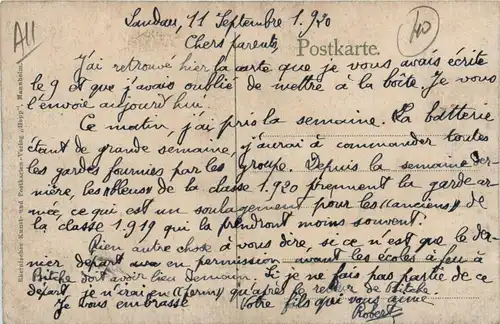 All
40
Landau, 11 Septembre 1.920
Chers parents,
Postkarte.
J'ai retrouvé hier la carte que je vous avais écrite
le 9 et que j'avais oublié de mettre à la boîte. Je vous
l'envoie aujourd'hui.
Ce matin, j'ai pris la semaine. La batterie
étant de grande semaine, j'aurai à commander toutes
les gardes fournies par les groupe. Depuis la semaine der-
nière, les «bleus» de la classe 1.920 prennent la garde ar-
mée, ce qui est un soulagement pour les «anciens» de
la classe 1.919 qui la prendront moins souvent.
Rien autre chose à vous dire, si ce n'est que le der-
nier départ en permission avant les écoles à feu à
Bitche doit avoir lieu demain. Si je ne fais pas partie de ce
départ je n'irai en «perm» qu'après le retour de Bitche.
Je vous embrasse Votre fils qui vous aime
Robert
Rheinischer Kunst- und Postkarten-Verlag „Hupp", Mannheim.